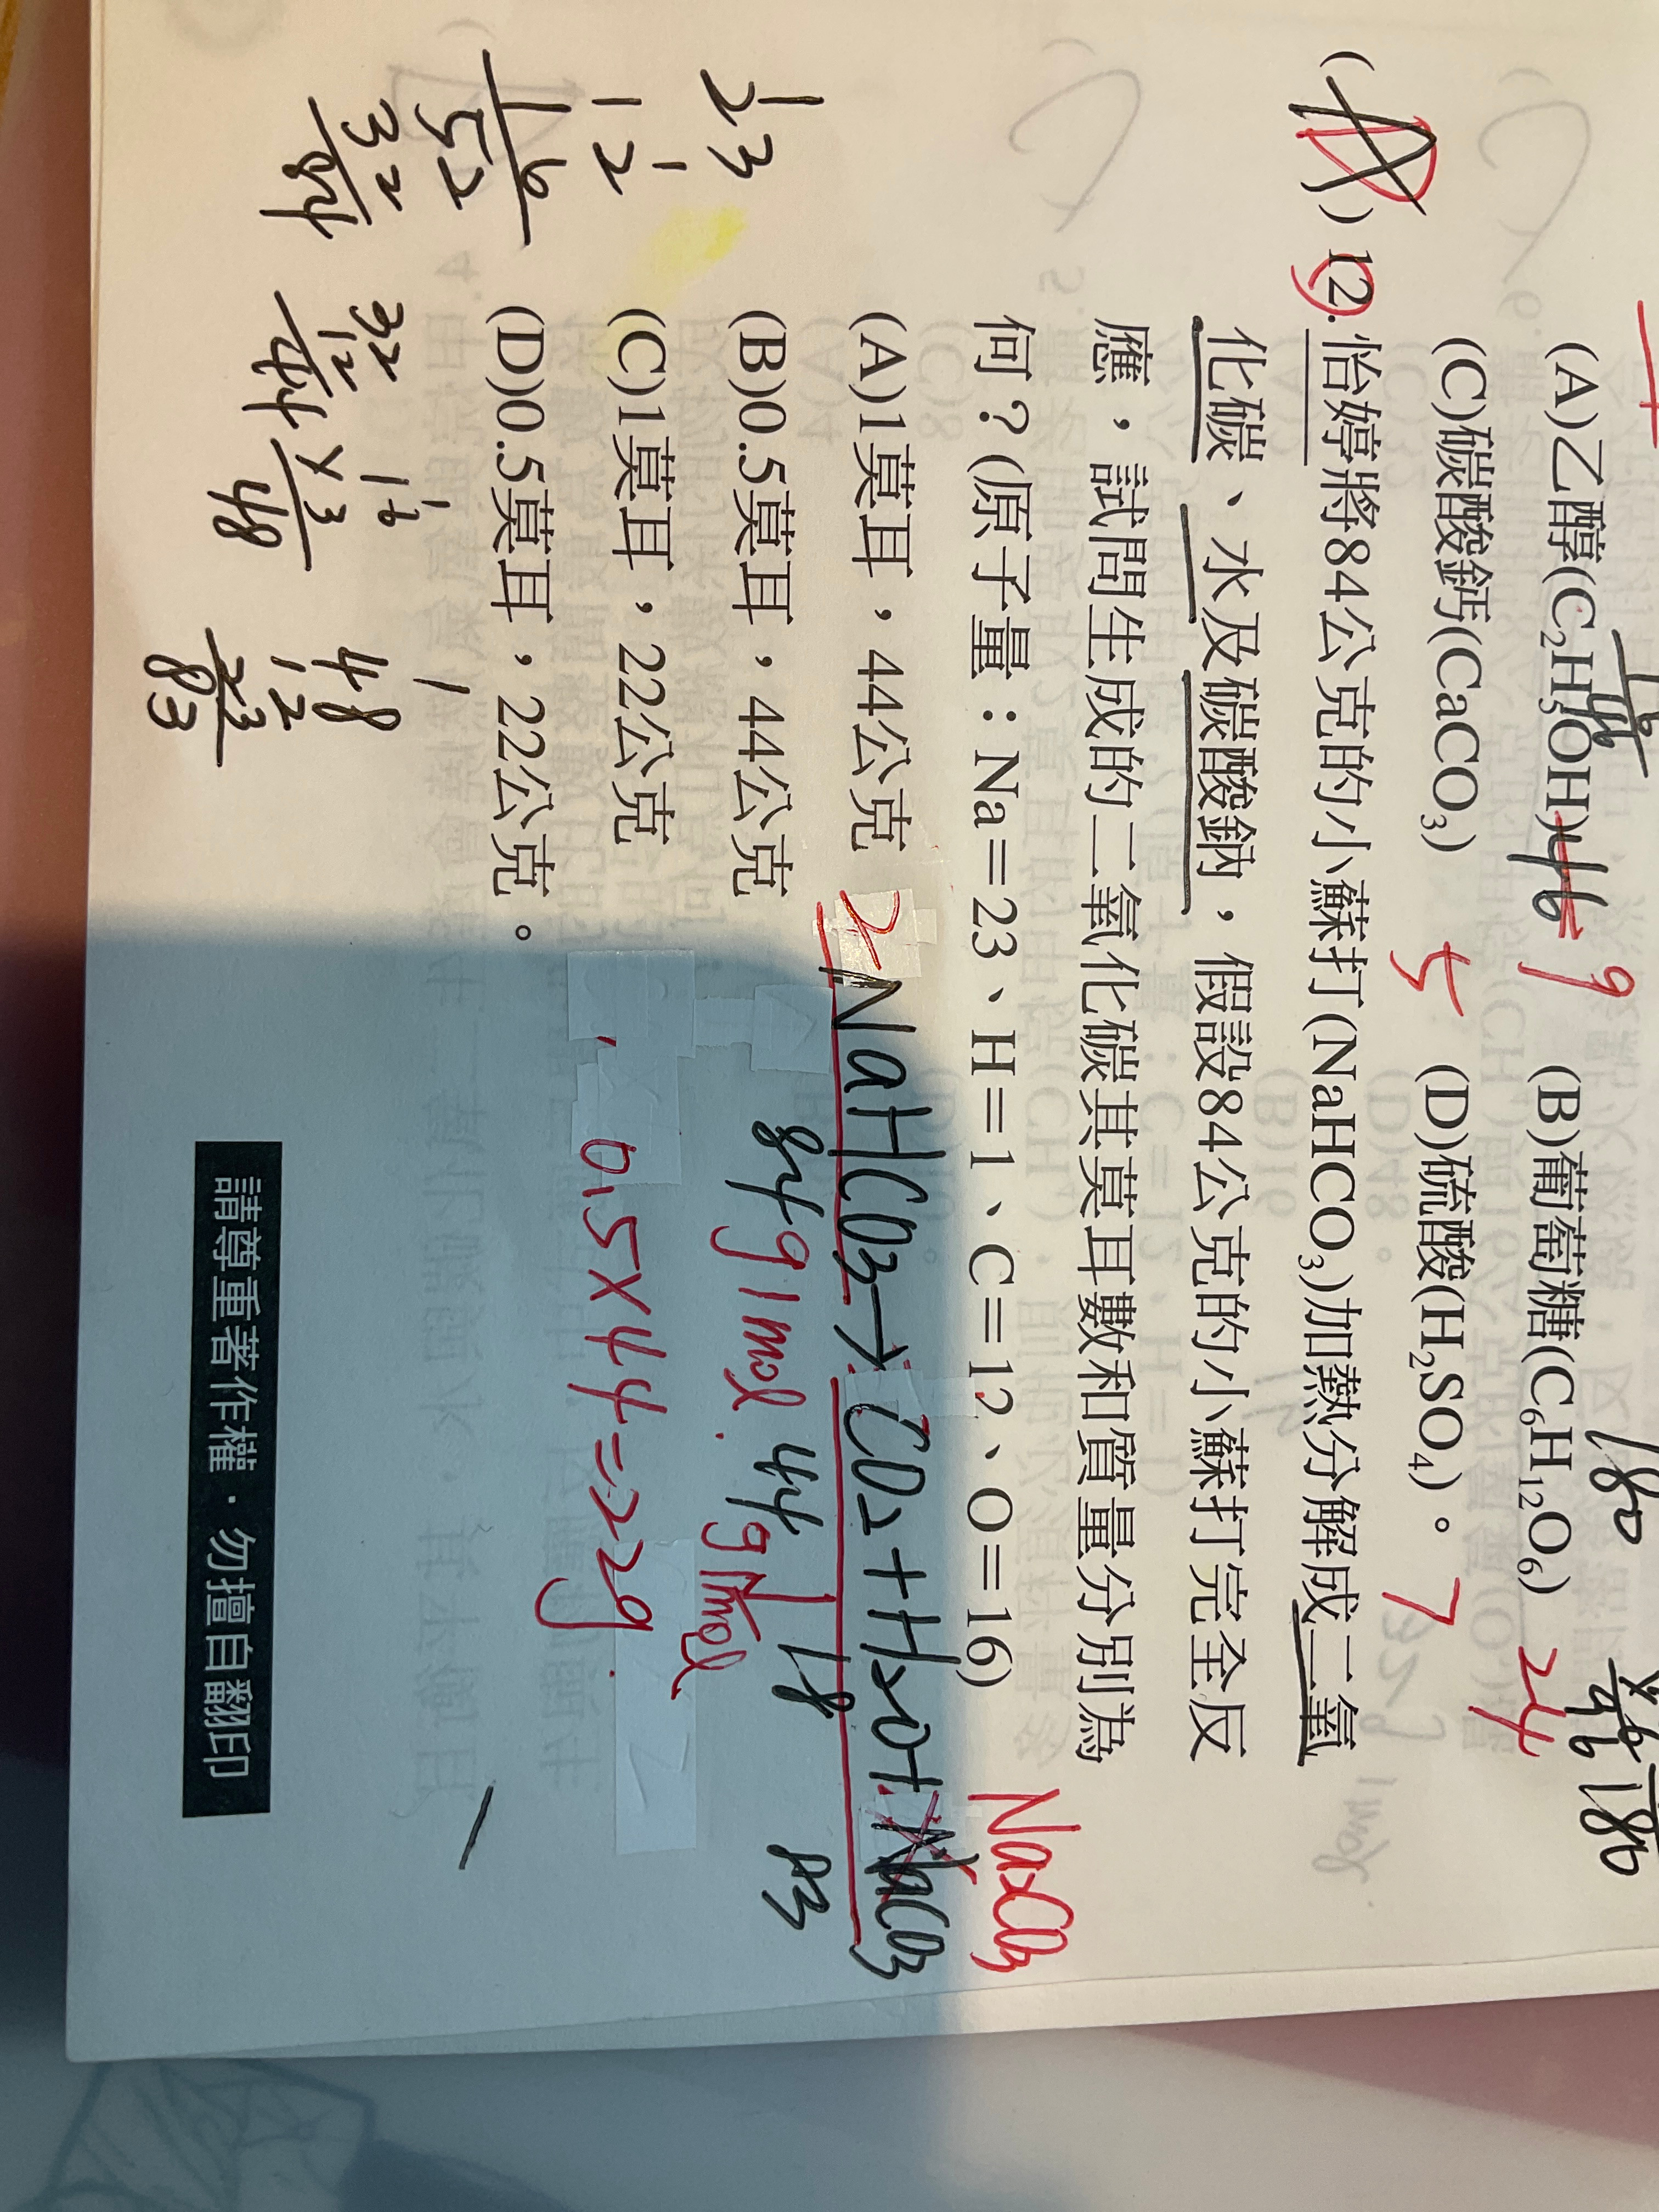 (A)乙醇(C₂H₅OH) 46 9 (B)葡萄糖(C₆H₁₂O₆) 24
180
(C)碳酸鈣(CaCO₃) 5 (D)硫酸(H₂SO₄)。 7
( ) 12.怡婷將84公克的小蘇打(NaHCO₃)加熱分解成二氧
化碳、水及碳酸鈉，假設84公克的小蘇打完全反
應，試問生成的二氧化碳其莫耳數和質量分別為
何？(原子量：Na＝23、H＝1、C＝12、O＝16)
Na₂CO₃
(A)1莫耳，44公克
2NaHCO₃→CO₂+H₂O+NaCO₃
(B)0.5莫耳，44公克
84g 1mol 44g 1mol 18 83
(C)1莫耳，22公克
0.5×44=22g
(D)0.5莫耳，22公克。
23
1
12
16
52
32
84
16
32
×3
48
48
12
23
83
請尊重著作權．勿擅自翻印